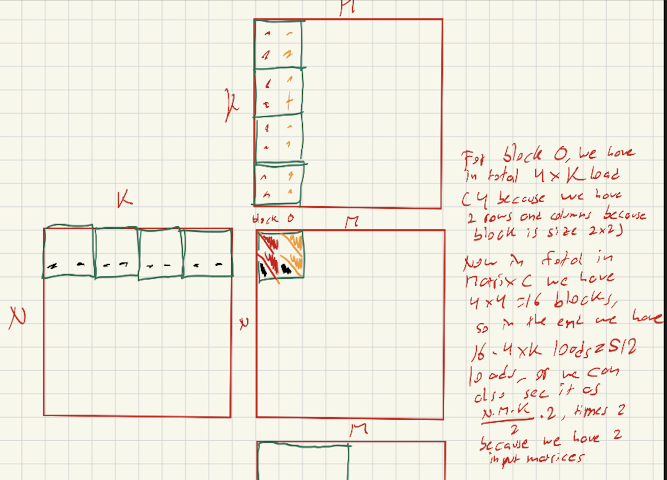 M
K
K
block 0
M
N
N
For block 0, we have
in total 4 x K load
(4 because we have
2 rows and columns because
block is size 2x2)
Now in total in
Matrix C we have
4 x 4 = 16 blocks,
so in the end we have
16 · 4 x K loads = 512
loads, or we can
also see it as
N·M·K / 2 · 2, times 2
because we have 2
input matrices
M